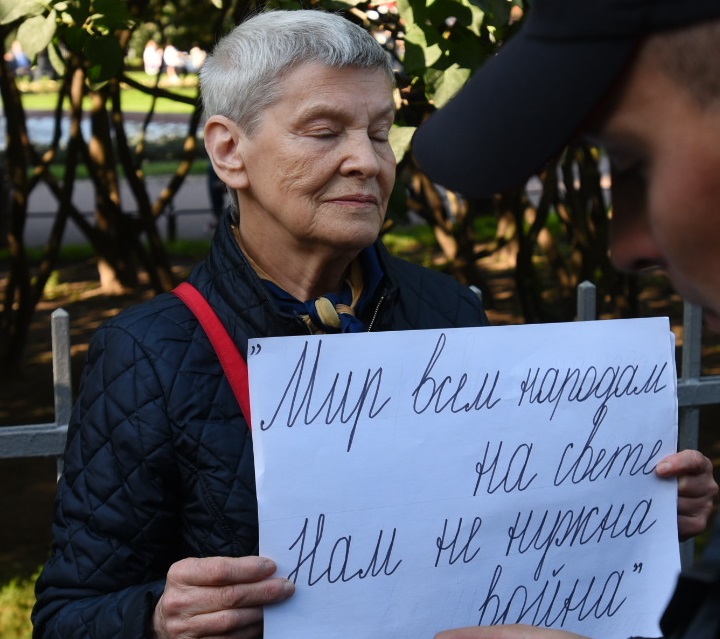 "Мир всем народам
на свете
Нам не нужна
война"